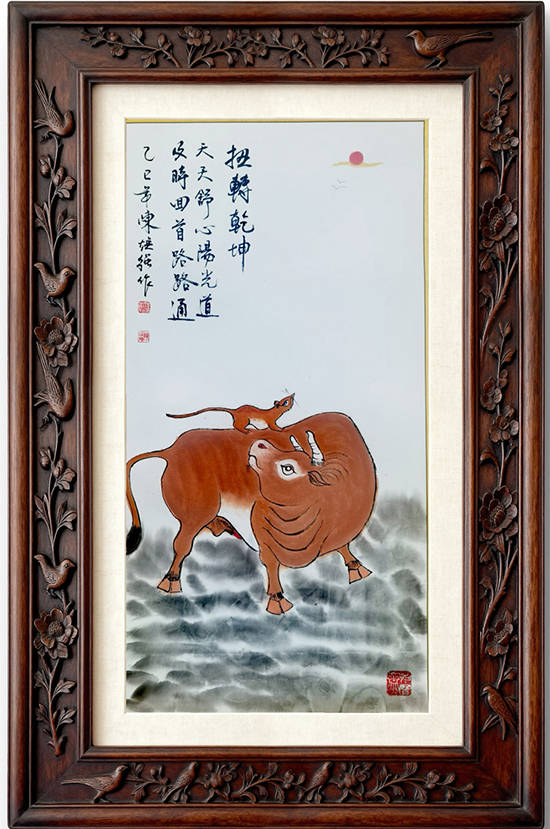 扭轉乾坤
天天舒心陽光道
及時回首路路通
乙巳年陳墟強作